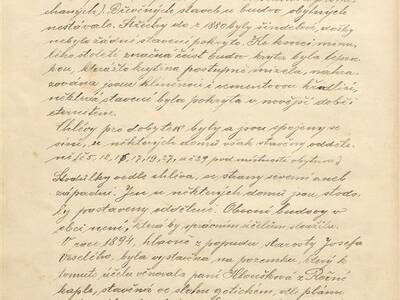 chaných). Dřevěných staveb u budov obytných
nestávalo. Střechy do r. 1880 byly šindelové, došky
nebylo žádné stavení pokryto. Ke konci minu-
lého století značná část budov kryta byla lepen-
kou, kterážto krytina postupně mizela, nahra-
zována jsouc hlinenou i cementovou křidlicí,
některá stavení byla pokryta v novější době i
eternitem.
Chlévy pro dobytek byly a jsou spojeny se
síní, u některých domů však stavěny odděle-
ně (č 5, 12, 15, 17, 19, 27, a č 29 pod místností obytnou).
Stodůlky vedle chléva, se strany severní aneb
západní. Jen u některých domů jsou stodo-
ly postaveny odděleně. Obecní budovy v
obci není, která by správním účelům sloužila.
V roce 1894, hlavně z popudu starosty Josefa
Veselého, byla vystavěna na pozemku, který k
tomuto účelu věnovala paní Hloušková z Račné
kaple, stavěná ve slohu gotickém, dle plánu